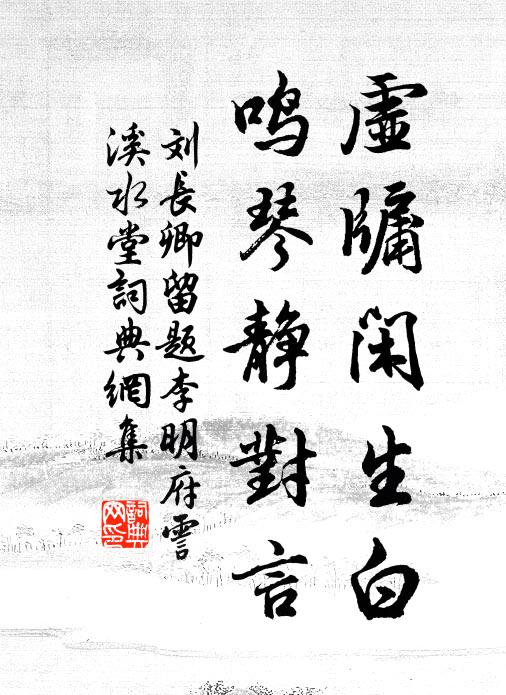 虚牖闲生白
鸣琴静對言
刘長卿留题李明府霅
溪水堂詞典網集
詞典网印